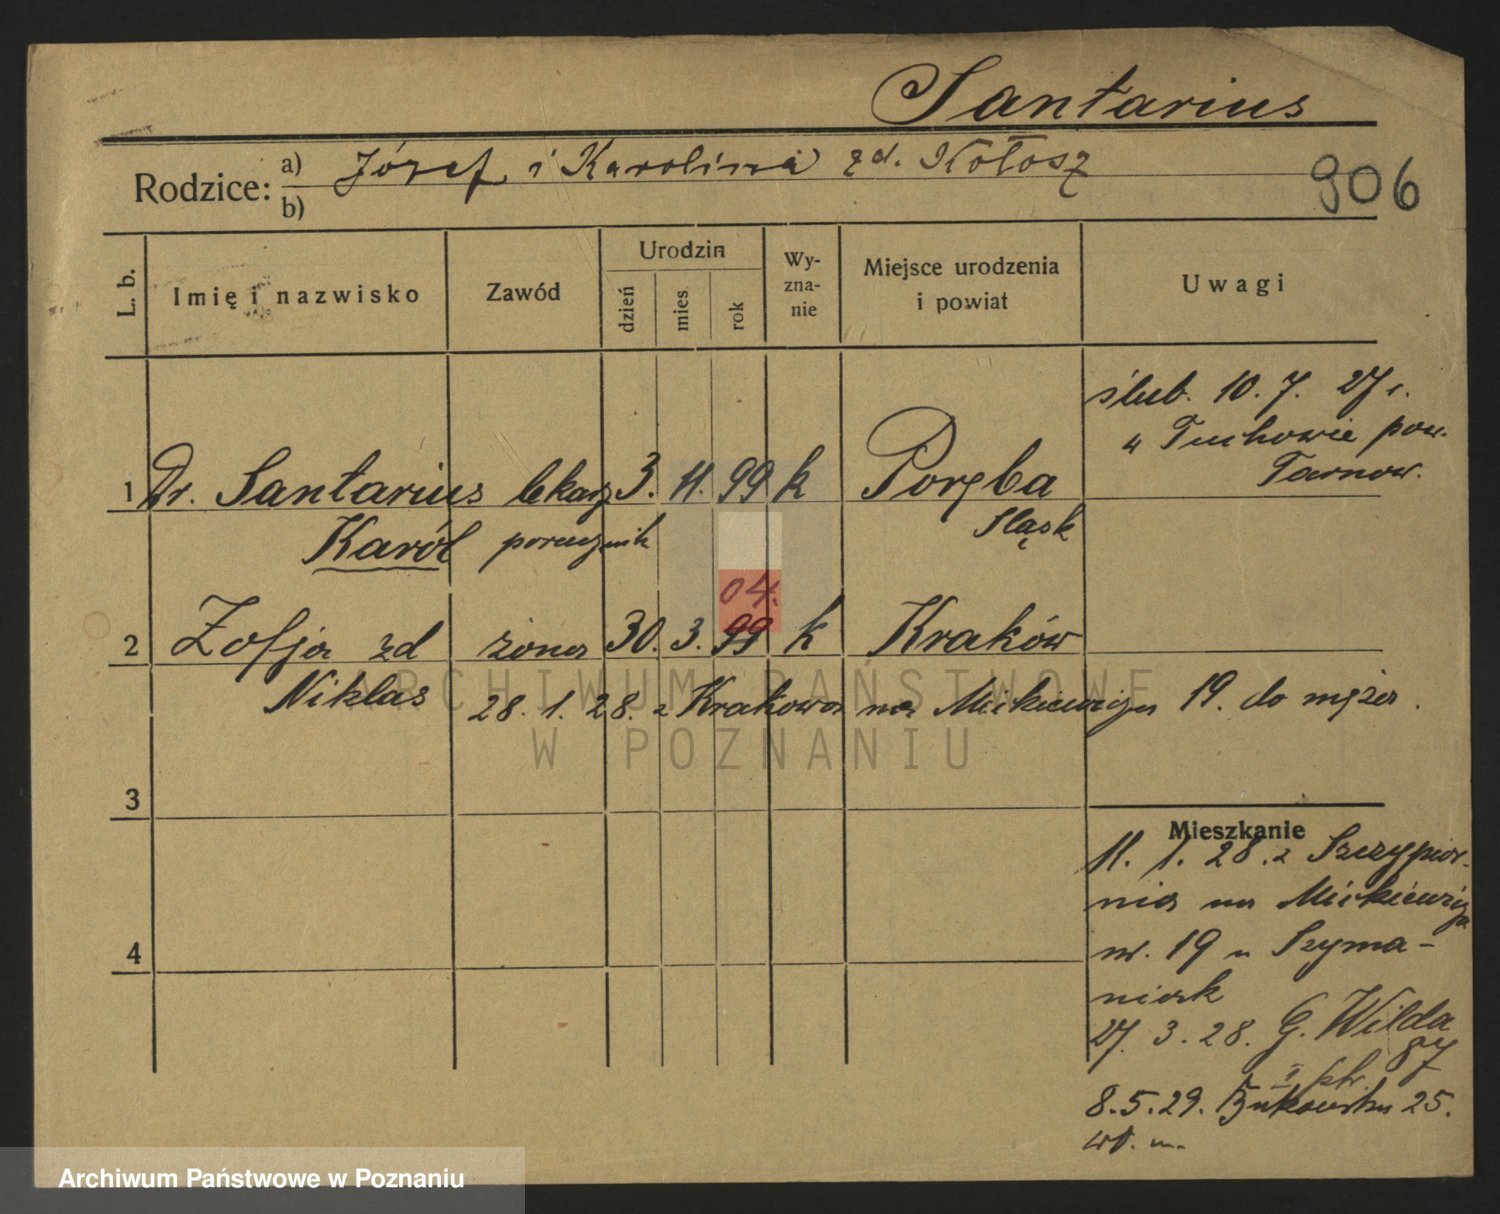 Santarius
Rodzice: a) Józef i Karolina zd. Kołosz
b)
906
L. b.
Imię i nazwisko
Zawód
Urodzin
dzień
mies.
rok
Wy-
zna-
nie
Miejsce urodzenia
i powiat
Uwagi
ślub. 10. 7. 27 r.
w Tuchowie pow.
Tarnow.
1 Dr. Santarius lekarz 3. 11. 99 k Poręba
Karól porucznik Śląsk
04.
2 Zofja zd żona 30. 3. 99 k Kraków
Niklas 28. 1. 28. z Krakowa na Mickiewicza 19. do męża.
3
Mieszkanie
11. 1. 28. z Szczypior-
nia na Mickiewicza
nr. 19 u Szyma-
niak
4
27. 3. 28. G. Wilda
87
II ptr.
8. 5. 29. Bukowska 25.
ARCHIWUM PAŃSTWOWE
W POZNANIU
Archiwum Państwowe w Poznaniu